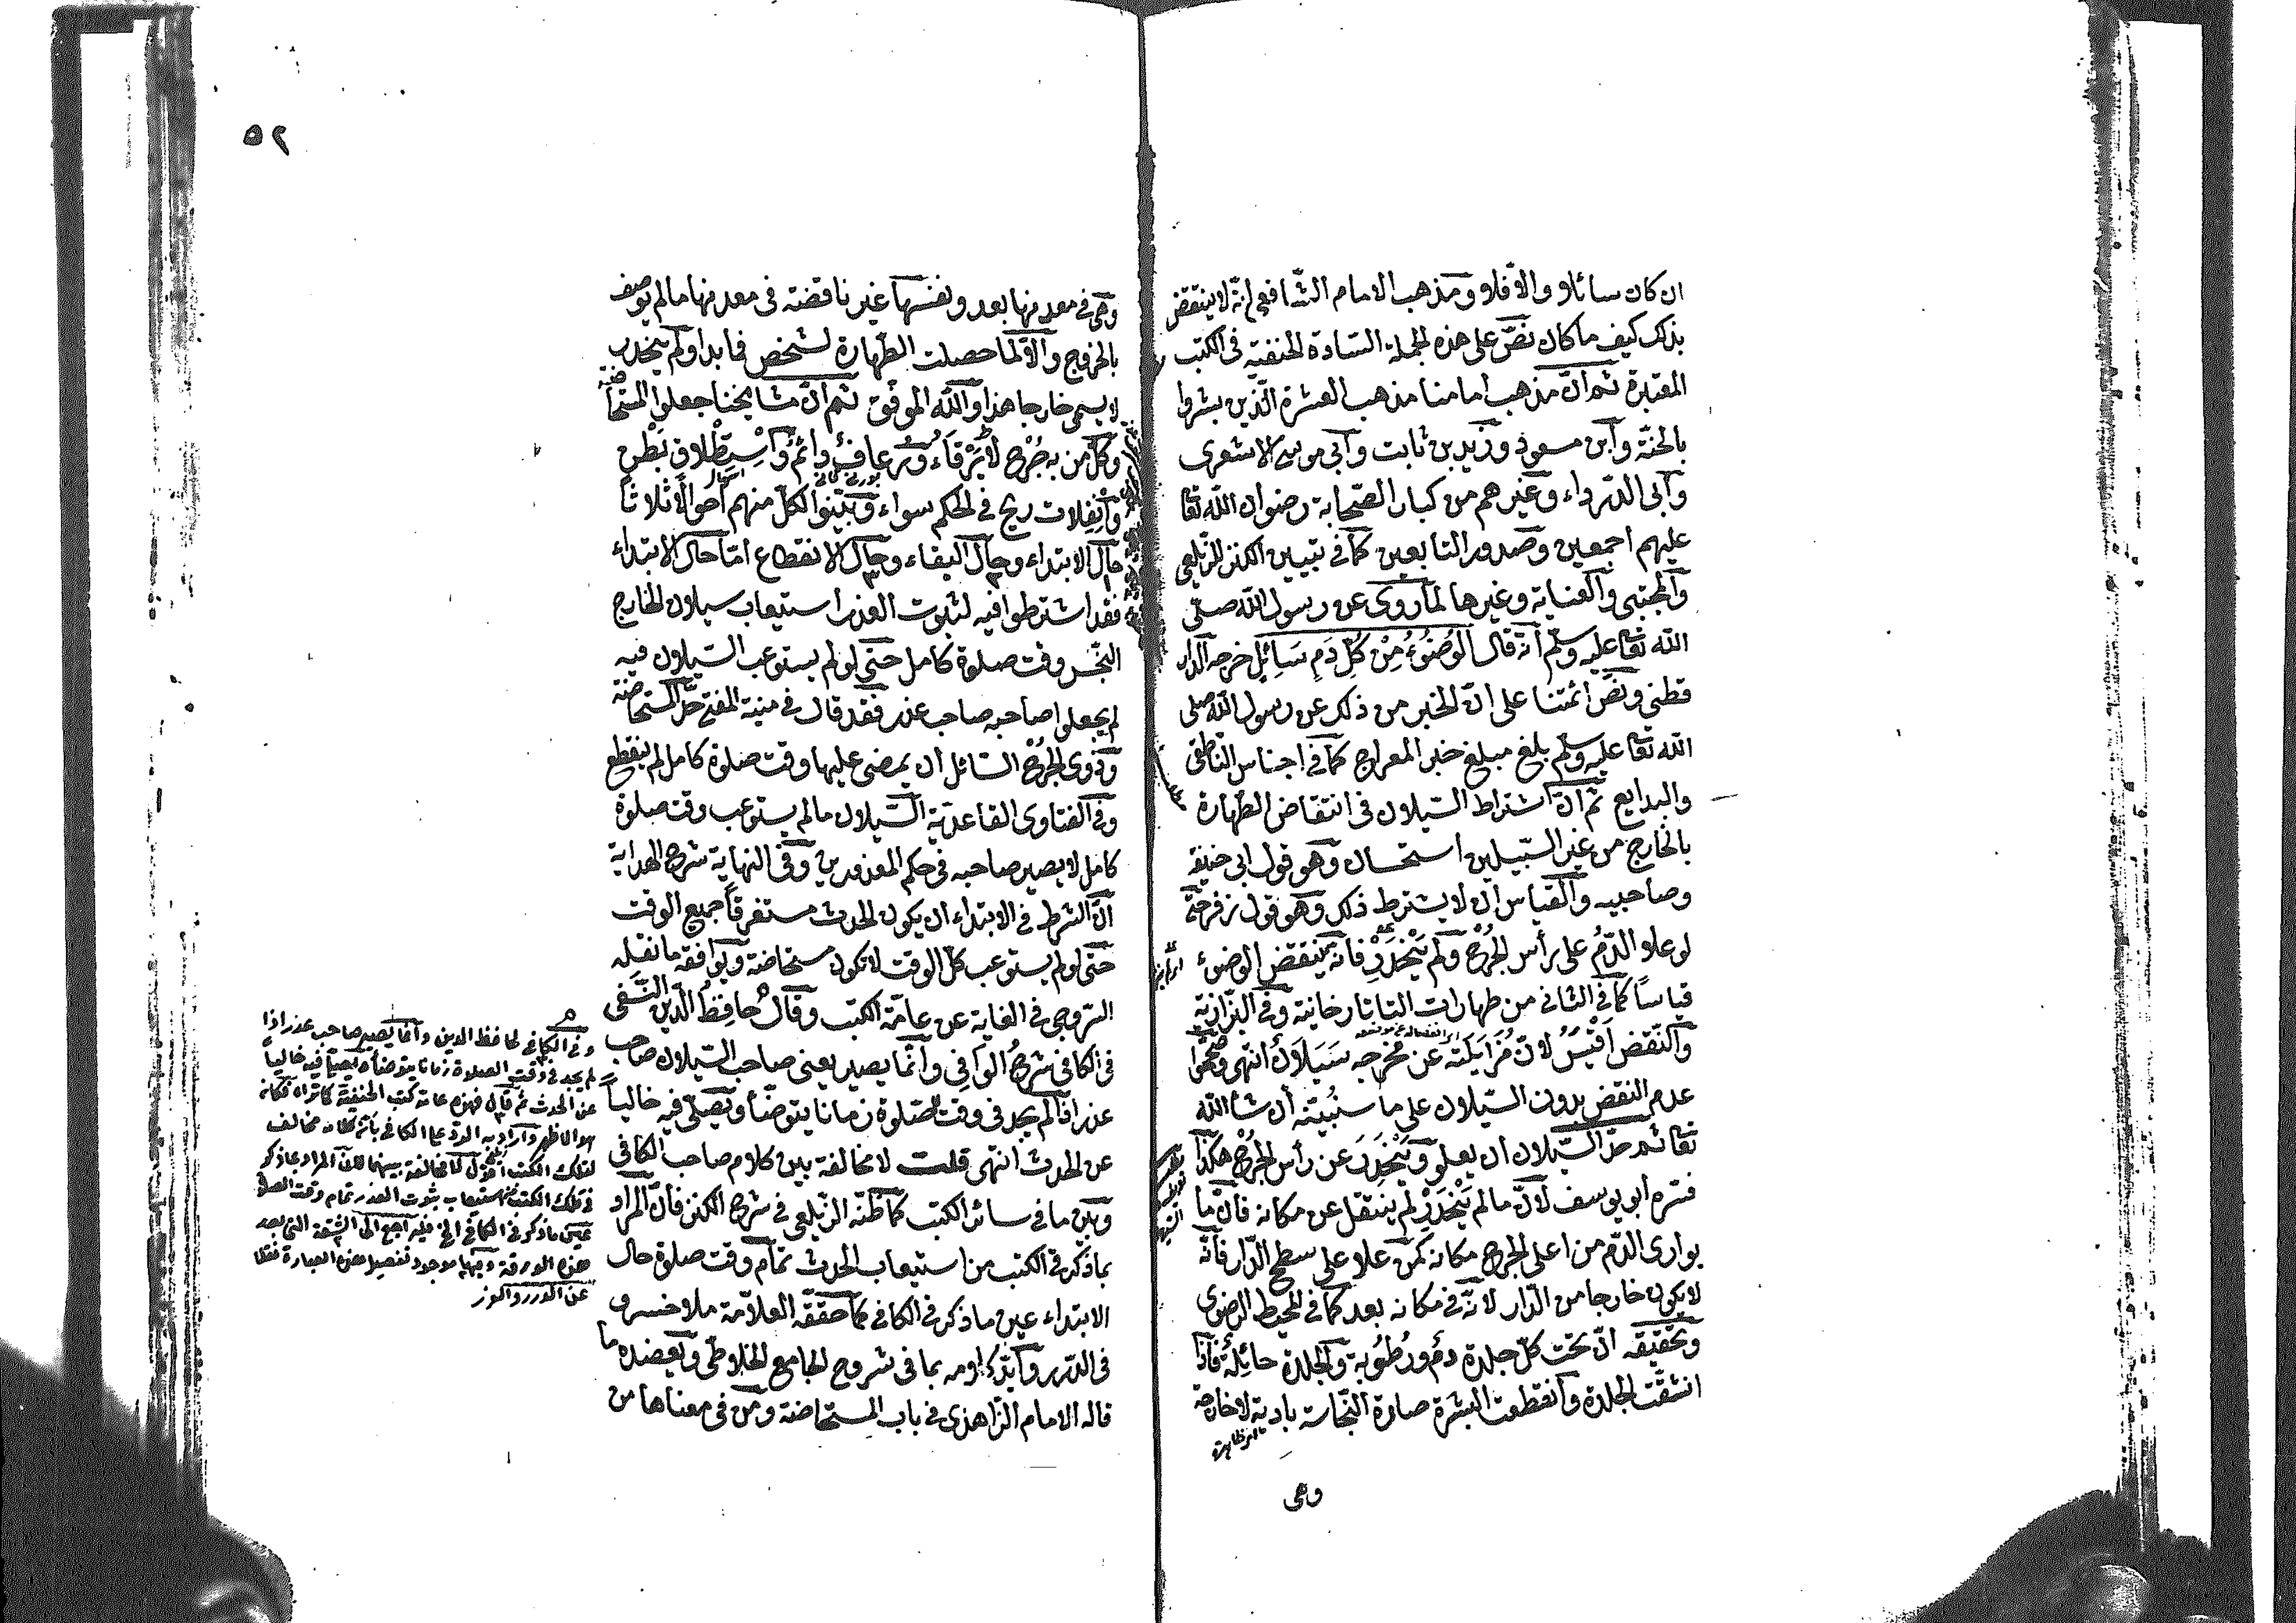 ان كان سائلا والّا فلا ومذهب الامام الشّافعي انّه لا ينتقض
بذلك كيف ما كان نصّ على هذه الجملة السّادة الحنفيّة في الكتب
المعتبرة ثم انّ مذهب امامنا مذهب العشرة الّذين بشروا
بالجنّة وابن مسعود وزيد بن ثابت وابي موسى الاشعرى
وابى الدّرداء وغيرهم من كبار الصّحابة رضوان الله تعا
عليهم اجمعين وصدور التابعين كما في تبيين الكنز للزّيلعى
والمجتبى والعناية وغيرها لما روى عن رسول الله صلّى
الله تعا عليه وسلّم انّه قال الوُضُوءُ مِنْ كُلِّ دَمٍ سَائِلٍ خرجه الدّار
قطنى ونصّ ائمتنا على انّ الخبر من ذلك عن رسول الله صلى
الله تعا عليه وسلّم بلغ مبلغ خبر المعراج كما في اجناس النّاطفى
والبدايع ثم انّ اشتراط السّيلان فى انتقاض الطّهارة
بالخارج من غير السّبيلين استحسان وهو قول ابى حنيفة
وصاحبيه والقياس ان لا يشترط ذلك وهو قول زفر حتى
لو علا الدّمُ على رأس الجُرْح ولم يَنْحَدِرْ فانّه ينتقض الوضوء
قياسًا كما في الثانى من طهارات التاتارخانية وفي البزّازية
والنّقض اَقْيَسُ لانّ مُزَايَلَتَه عن مخرجه سَيَلَانٌ انتهى وصحّحوا
عدم النقض بدون السّيلان على ما سنُبيّنه ان شاء الله
تعا ثم حدّ السّيلان ان يعلو ويَنْحَدِرَ عن رأس الجُرْح هكذا
فسّره ابو يوسف لانّ ما لم يَنْحَدِرْ لم ينتقل عن مكانه فانّ ما
يوارى الدّم من اعلى الجرح مكانه كمن علا على سطح الدّار فانّه
لا يكون خارجا من الدّار لانّه في مكانه بعد كما في المحيط الرضوى
وتحقيقه انّ تحت كلّ جلدة دم ورُطُوبة والجلدة حائِلةٌ فاذا
انشقّت الجلدة وانقطعت البشرة صارة النّجاسة بادية لا خارجة
وهى
٥٢
وهى في معدنها بعد ونفسها غير ناقضة فى معدنها ما لم يوصف
بالخروج والّا لما حصلت الطّهارة لشخص فما بدا ولم ينحدر
لا يسمى خارجا هذا والله الموفّق ثم انّ مشايخنا جعلوا المستحاضة
وكلّ من به جُرْح لا يَرْقَاءُ ورُعاف دائمٌ واسْتِطْلاق بَطْنٍ
وانْفِلات ريح في الحكم سواء وبيّنوا لكلّ منهم احوالا ثلاثاً
حال الابتداء وحال البقاء وحال الانقطاع امّا حال الابتداء
فقد اشترطوا فيه لثبوت العذر استيعاب سيلان الخارج
النّجس وقت صلوة كامل حتى لو لم يستوعب السّيلان فيه
لم يجعلوا صاحبه صاحب عذر فقد قال في منية المفتى حدّ المستحاضة
وذوى الجُرْح السّائل ان يمضى عليها وقت صلوة كامل لم ينقطع
وفي الفتاوى القاعديّة السّيلان ما لم يستوعب وقت صلوة
كامل لا يصير صاحبه فى حكم المعذورين وفي النهاية شرح الهداية
انّ الشرط في الابتداء ان يكون الحدث مستغرقًا جميع الوقت
حتى لو لم يستوعب كلّ الوقت لا تكون مستحاضة ويوافقه ما نقله
السّروجى فى الغاية عن عامّة الكتب وقال حافِظُ الدّين النّسفى
فى الكافى شرحُ الوافِى وانّما يصير يعنى صاحب السّيلان صاحب
عذر اذا لم يجد فى وقت الصّلوة زمانا يتوضّأ ويصلّى فيه خالياً
عن الحدث انتهى قلت لا مخالفة بين كلام صاحب الكافى
وبين ما في سائر الكتب كما ظنّه الزّيلعى في شرح الكنز فانّ المراد
بما ذكر في الكتب من استيعاب الحدث تمام وقت صلوة حال
الابتداء عين ما ذكر فى الكافى كما حقّقه العلّامة ملا خسرو
فى الدّرر وايّد كلامه بما فى شروح الجامع الخلاطى ويعضده ما
قاله الامام الزّاهدى فى باب المستحاضة ومن فى معناها من
وفي الكافي لحافظ الدين وانما يصير صاحب عذر اذا
لم يجد فى وقت الصلاة زمانا يتوضأ ويصلى فيه خالياً
عن الحدث ثم قال فهذه عامة كتب الحنفية كما تراه فكانه
هو الاظهر واراد به الرد على الكافى بان كلامه مخالف
لتلك الكتب اقول لا مخالفة بينهما لان المراد بما ذكر
في تلك الكتب من استيعاب ثبوت العذر تمام وقت الصلاة
عين ما ذكر في الكافى الخ فليراجع الى
هذه الورقة
عن الدرر والغرر